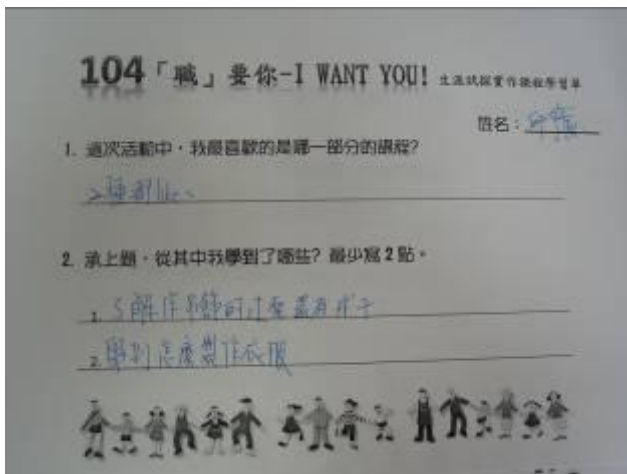 104「職」要你-I WANT YOU! 生涯試探實作課程學習單
姓名：
1. 這次活動中，我最喜歡的是哪一部分的課程?
2種都like
2. 承上題，從其中我學到了哪些? 最少寫 2 點。
1.
2. 學到怎麼製作衣服